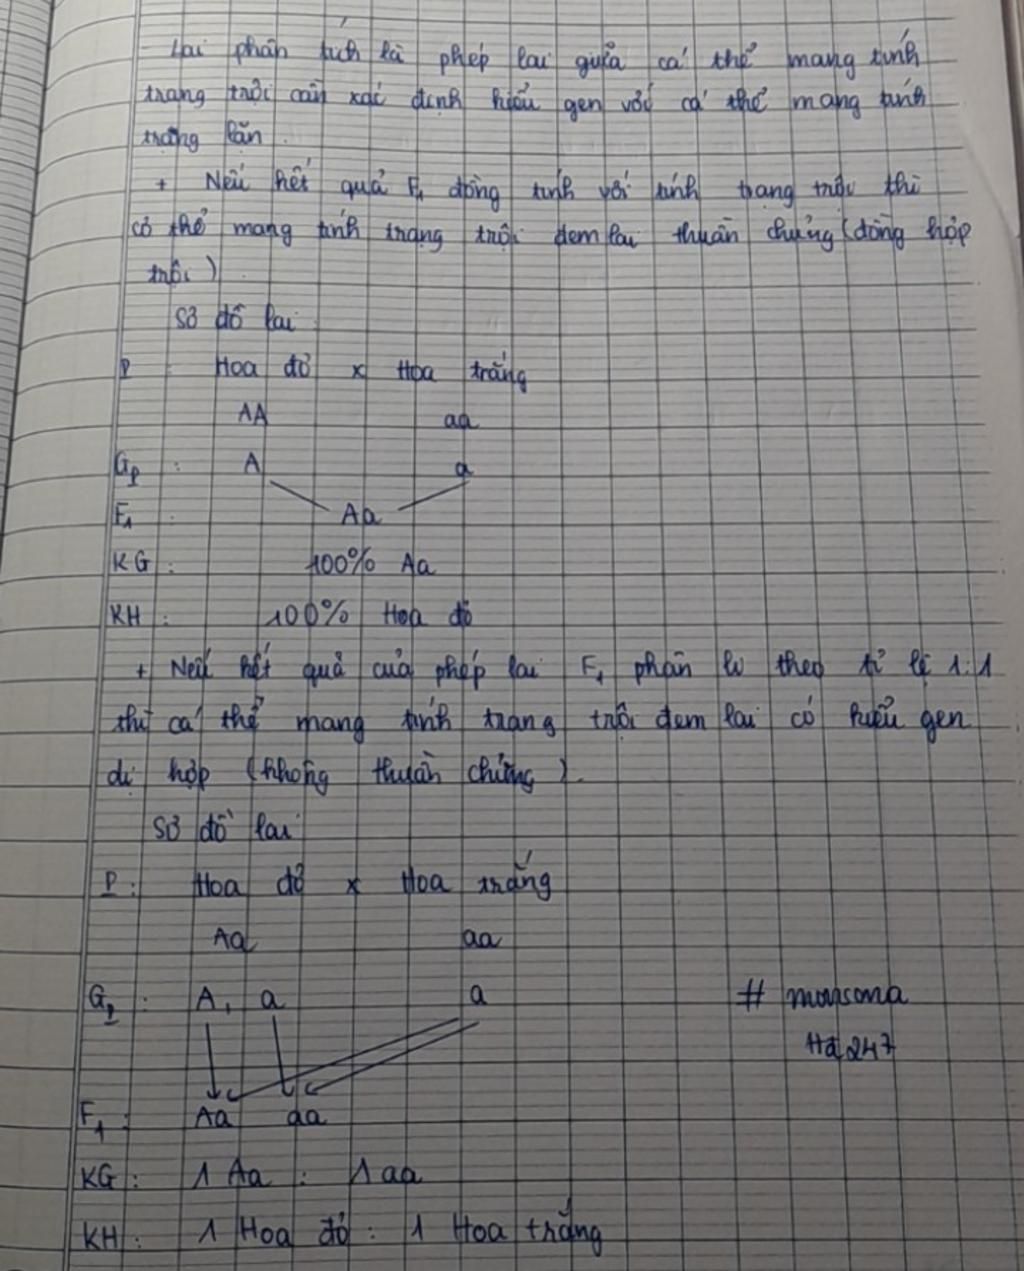 - Lai phân tích là phép lai giữa cá thể mang tính
trạng trội cần xác định kiểu gen với cá thể mang tính
trạng lặn.
+ Nếu kết quả F1 đồng tính với tính trạng trội thì
có thể mang tính trạng trội đem lai thuần chủng (đồng hợp
trội).
Sơ đồ lai
P: Hoa đỏ x Hoa trắng
AA aa
Gp: A a
F1: Aa
KG: 100% Aa
KH: 100% Hoa đỏ
+ Nếu kết quả của phép lai F1 phân li theo tỉ lệ 1:1
thì cá thể mang tính trạng trội đem lai có kiểu gen
dị hợp (không thuần chủng).
Sơ đồ lai
P: Hoa đỏ x Hoa trắng
Aa aa
Gp: A, a a
# monsoma
Ha247
F1: Aa aa
KG: 1 Aa : 1 aa
KH: 1 Hoa đỏ : 1 Hoa trắng